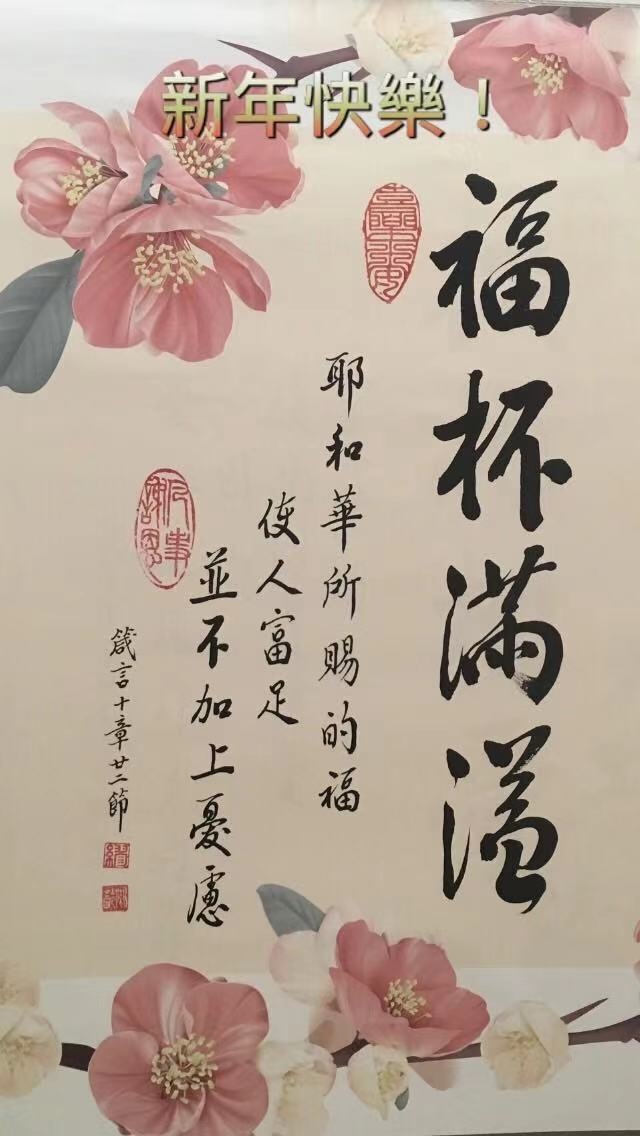 新年快樂！
福杯滿溢
耶和華所賜的福
使人富足
並不加上憂慮
箴言十章廿二節
凡事
謝恩